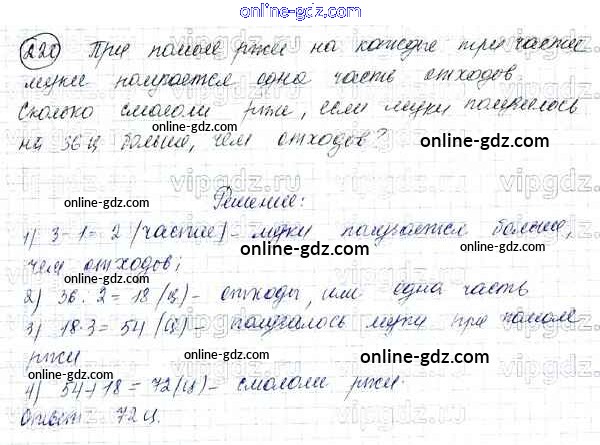 online-gdz.com
220 При помоле ржи на каждые три части
муки получается одна часть отходов.
online-gdz.com
Сколько смололи ржи, если муки получилось
online-gdz.com
на 36 ц больше, чем отходов?
online-gdz.com
online-gdz.com
Решение:
online-gdz.com
1) 3-1=2 (части) - муки получается больше,
online-gdz.com
чем отходов;
2) 36:2=18 (ц) - отходы, или одна часть
online-gdz.com
3) 18·3=54 (ц) - получилось муки при помоле
online-gdz.com
ржи
online-gdz.com
4) 54+18=72 (ц) - смололи ржи.
Ответ 72 ц.
online-gdz.com
online-gdz.com